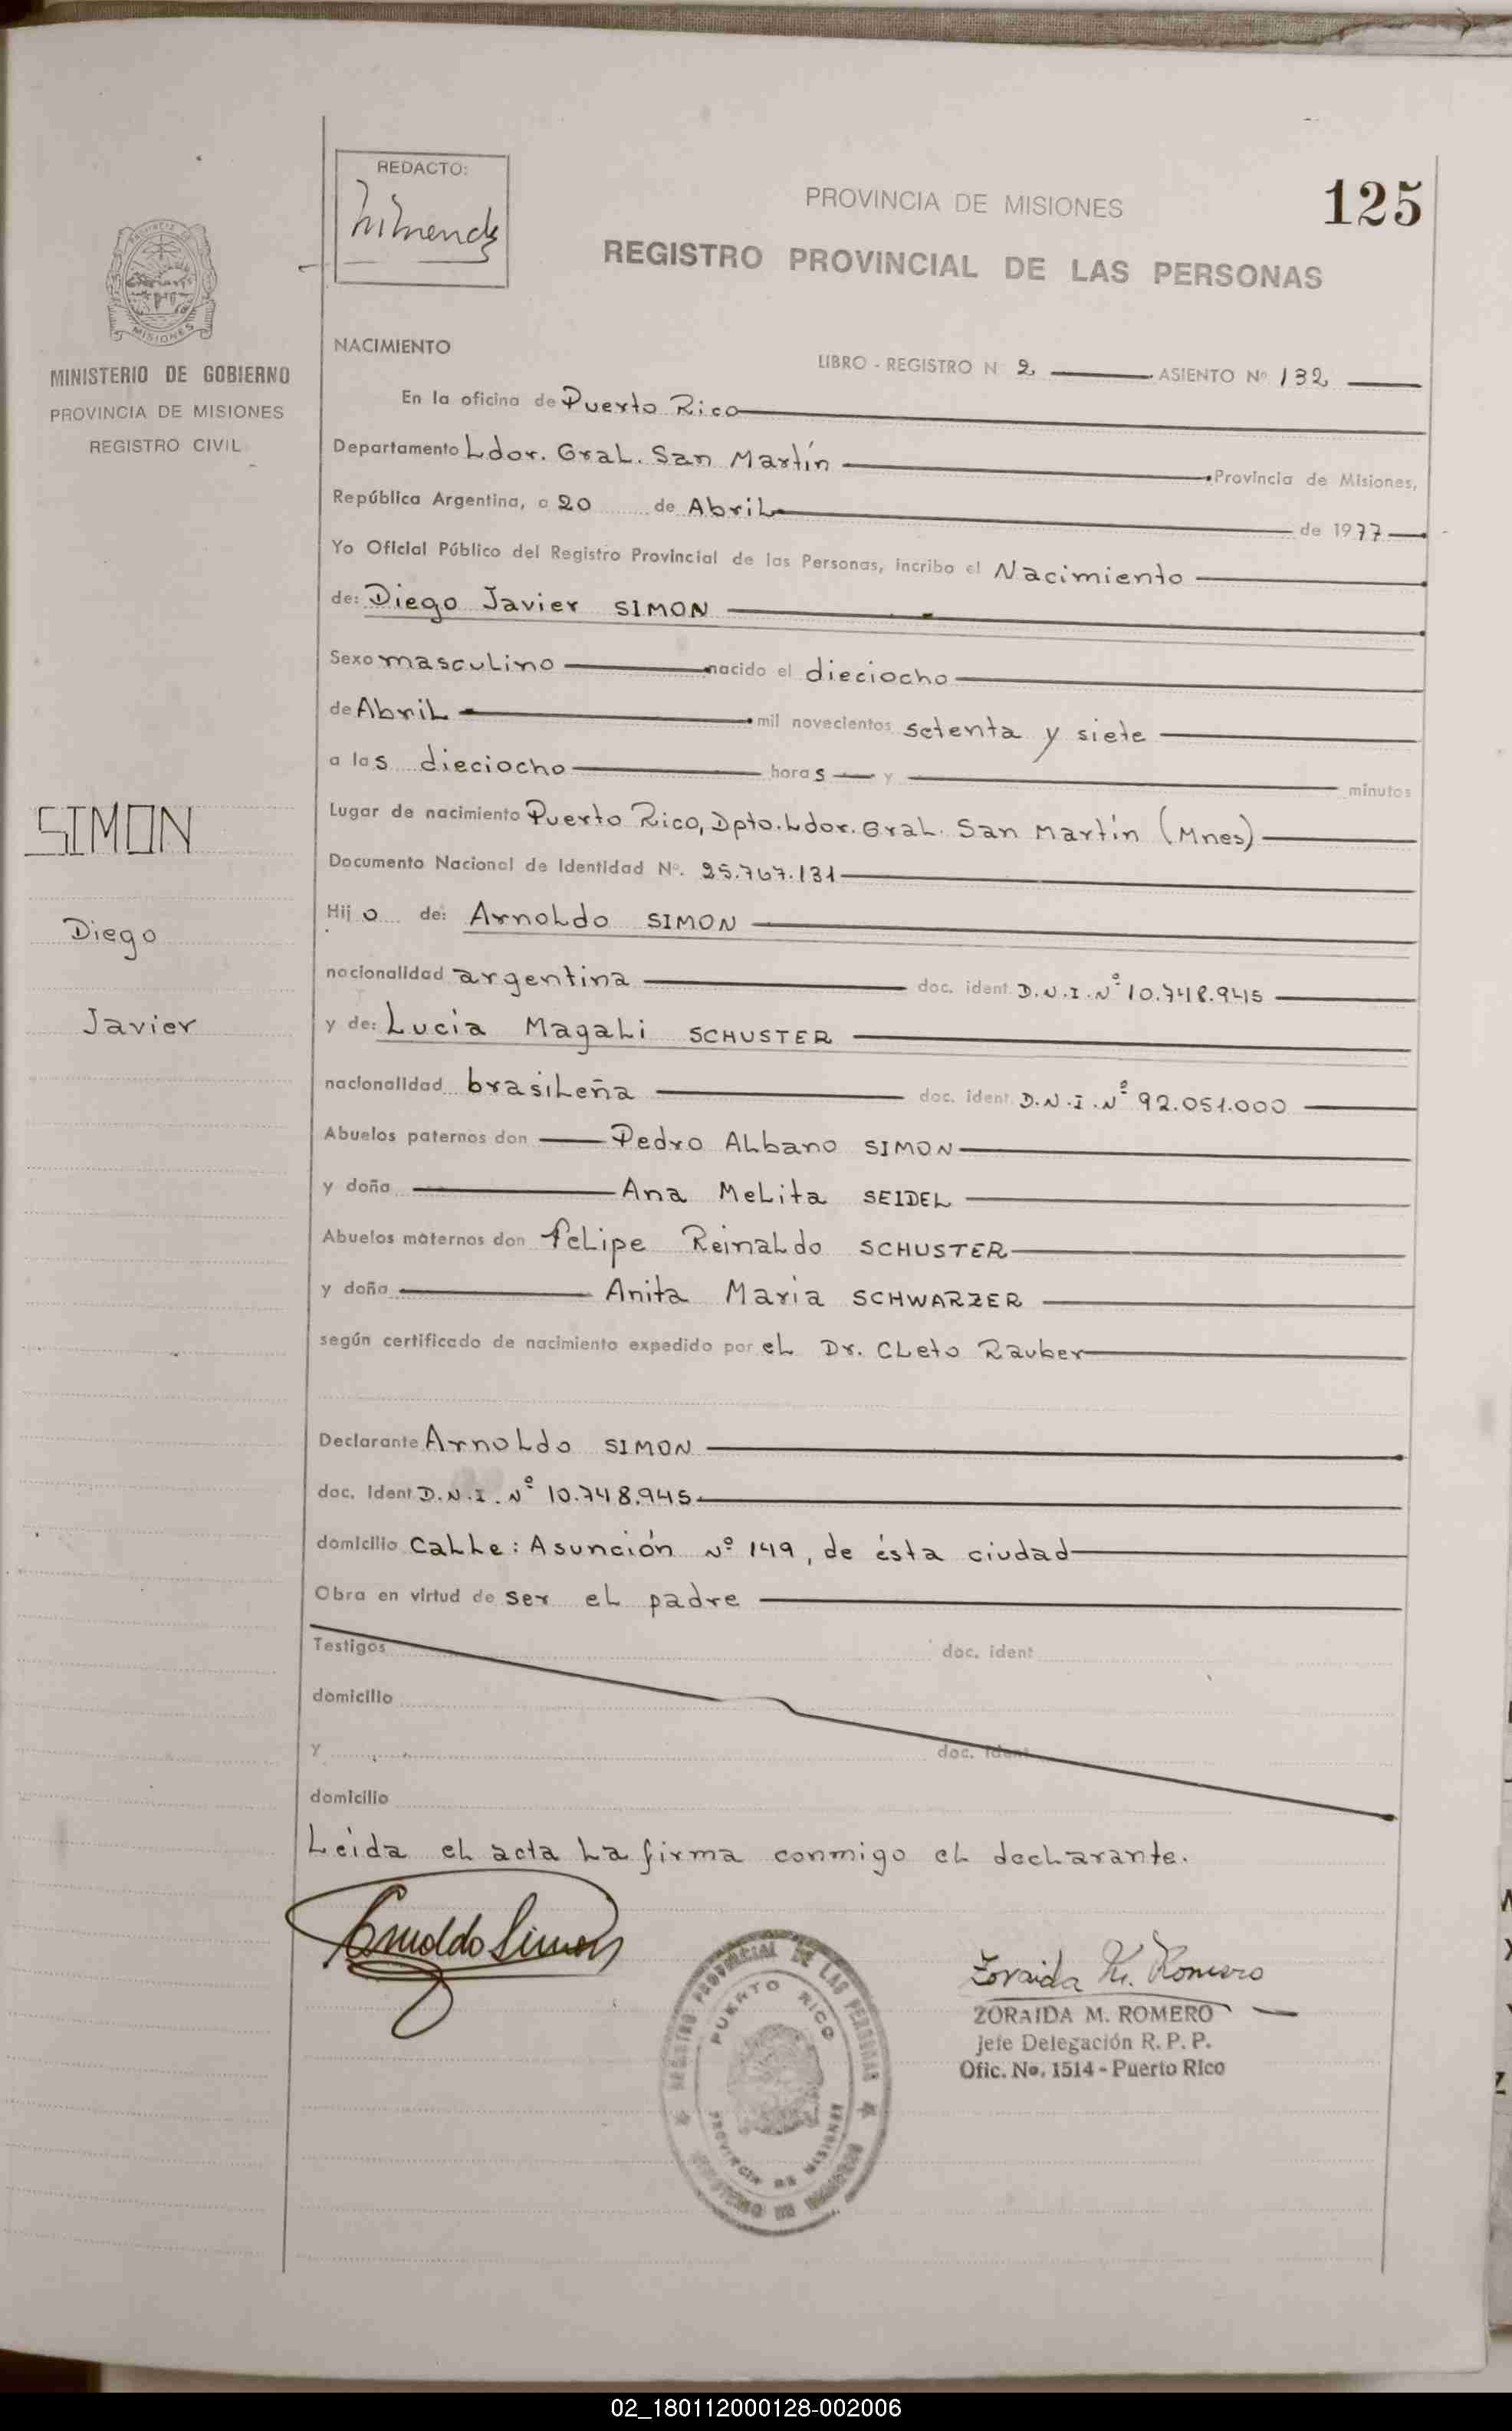 REDACTO:
PROVINCIA DE MISIONES
125
REGISTRO PROVINCIAL DE LAS PERSONAS
MISIONES
MINISTERIO DE GOBIERNO
PROVINCIA DE MISIONES
REGISTRO CIVIL
NACIMIENTO
LIBRO - REGISTRO N 2 ASIENTO Nº 132
En la oficina de Puerto Rico
Departamento Ldor. Gral. San Martín Provincia de Misiones,
República Argentina, a 20 de Abril de 1977
Yo Oficial Público del Registro Provincial de las Personas, incribo el Nacimiento
de: Diego Javier SIMON
Sexo masculino nacido el dieciocho
de Abril mil novecientos setenta y siete
a las dieciocho horas y minutos
Lugar de nacimiento Puerto Rico, Dpto. Ldor. Gral. San Martín (Mnes)
Documento Nacional de Identidad Nº. 25.767.131
Hijo de: Arnoldo SIMON
nacionalidad argentina doc. ident. D.N.I. Nº 10.748.945
y de: Lucia Magali SCHUSTER
nacionalidad brasileña doc. ident. D.N.I. Nº 92.051.000
Abuelos paternos don Pedro Albano SIMON
y doña Ana Melita SEIDEL
Abuelos maternos don Felipe Reinaldo SCHUSTER
y doña Anita Maria SCHWARZER
según certificado de nacimiento expedido por el Dr. Cleto Rauber
Declarante Arnoldo SIMON
doc. Ident D.N.I. Nº 10.748.945
domicilio Calle: Asunción Nº 149, de ésta ciudad
Obra en virtud de ser el padre
Testigos doc. ident
domicilio
y doc. ident
domicilio
Leída el acta la firma conmigo el declarante.
SIMON
Diego
Javier
Arnoldo Simon
REGISTRO PROVINCIAL DE LAS PERSONAS
PUERTO RICO
PROVINCIA DE MISIONES
MINISTERIO DE GOBIERNO
Zoraida M. Romero
ZORAIDA M. ROMERO
Jefe Delegación R. P. P.
Ofic. No. 1514 - Puerto Rico
02_180112000128-002006